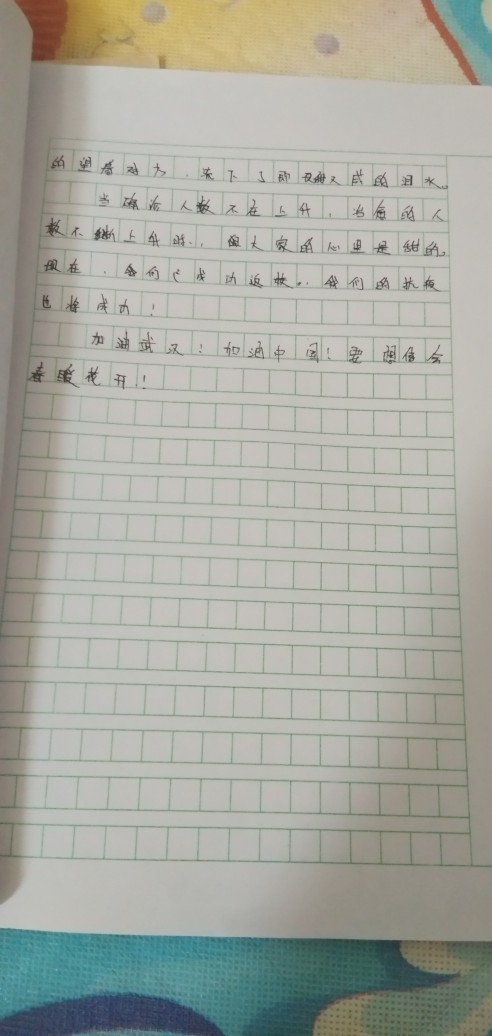 的望着对方,流下了即甜又咸的泪水。
当确诊人数不在上升,治愈的人
数不断上升时,但大家的心里是甜的。
现在,我们已成功返校。,我们的抗疫
也将成功!
加油武汉!加油中国!要相信会
春暖花开!!